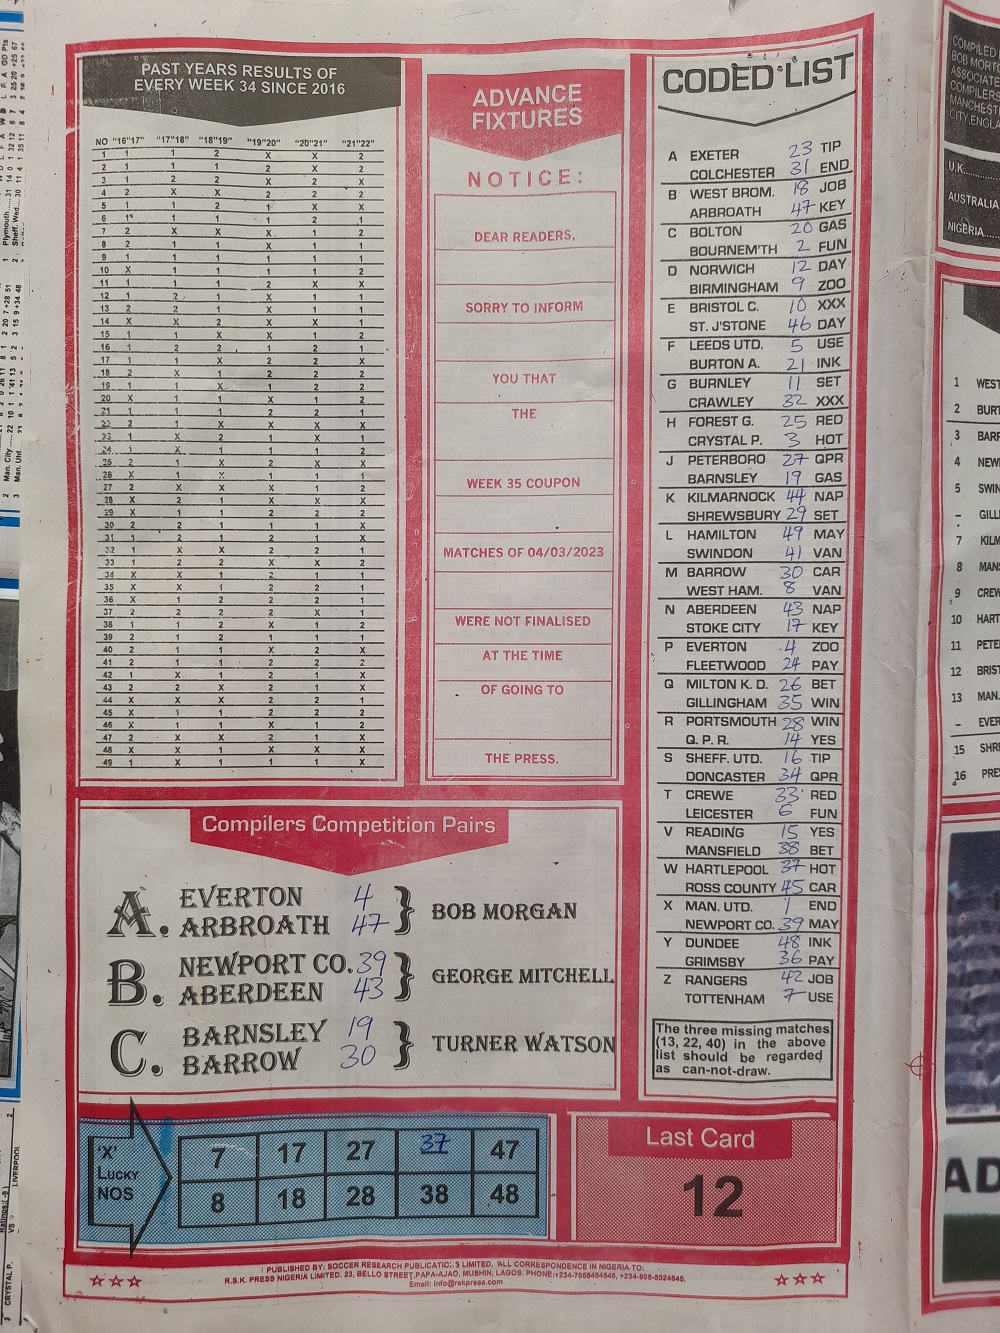 PAST YEARS RESULTS OF
EVERY WEEK 34 SINCE 2016
NO "16"17" "17"18" "18"19" "19"20" "20"21" "21"22"
1 1 1 2 X X 2
2 1 1 1 2 X 2
3 1 2 2 X 2 X
4 2 X X 2 2 2
5 1 1 2 1 X X
6 1* 1 1 1 2 1
7 2 X X X 1 2
8 2 1 1 1 1 1
9 1 1 1 1 1 1
10 X 1 1 1 1 2
11 1 1 1 2 X X
12 1 2 1 X 1 1
13 2 2 1 X 1 1
14 X X 2 X X 1
15 1 1 X X 1 2
16 1 2 2 1 2 1
17 1 1 X 2 2 X
18 2 X 1 2 2 2
19 1 1 X 1 2 2
20 X 1 1 X 1 2
21 1 1 1 2 2 1
22 2 1 X X X X
23 1 X 2 1 X 1
24 1 X 1 1 1 2
25 2 1 X 2 X X
26 X 1 X 1 1 1
27 2 X X X 1 2
28 X 2 1 X X X
29 X 1 1 2 2 2
30 2 2 1 1 1 X
31 1 2 1 2 1 X
32 1 X X 2 2 1
33 1 2 2 X X 2
34 X X 1 2 1 1
35 X X 1 2 2 1
36 X 1 2 2 2 1
37 2 2 2 2 X 1
38 1 1 2 X 1 2
39 2 1 2 1 1 1
40 2 1 1 X 2 X
41 2 1 1 2 2 2
42 1 X 1 1 1 X
43 2 2 X 2 1 X
44 X X X 2 1 X
45 X 1 1 2 2 2
46 X 1 1 X 1 2
47 2 X X 2 1 X
48 X X 1 X X X
49 1 X 1 1 1 X
ADVANCE
FIXTURES
NOTICE:
DEAR READERS,
SORRY TO INFORM
YOU THAT
THE
WEEK 35 COUPON
MATCHES OF 04/03/2023
WERE NOT FINALISED
AT THE TIME
OF GOING TO
THE PRESS.
CODED LIST
A EXETER 23 TIP
COLCHESTER 31 END
B WEST BROM. 18 JOB
ARBROATH 47 KEY
C BOLTON 20 GAS
BOURNEM'TH 2 FUN
D NORWICH 12 DAY
BIRMINGHAM 9 ZOO
E BRISTOL C. 10 XXX
ST. J'STONE 46 DAY
F LEEDS UTD. 5 USE
BURTON A. 21 INK
G BURNLEY 11 SET
CRAWLEY 32 XXX
H FOREST G. 25 RED
CRYSTAL P. 3 HOT
J PETERBORO 27 QPR
BARNSLEY 19 GAS
K KILMARNOCK 44 NAP
SHREWSBURY 29 SET
L HAMILTON 49 MAY
SWINDON 41 VAN
M BARROW 30 CAR
WEST HAM. 8 VAN
N ABERDEEN 43 NAP
STOKE CITY 17 KEY
P EVERTON 4 ZOO
FLEETWOOD 24 PAY
Q MILTON K. D. 26 BET
GILLINGHAM 35 WIN
R PORTSMOUTH 28 WIN
Q. P. R. 14 YES
S SHEFF. UTD. 16 TIP
DONCASTER 34 QPR
T CREWE 33 RED
LEICESTER 6 FUN
V READING 15 YES
MANSFIELD 38 BET
W HARTLEPOOL 37 HOT
ROSS COUNTY 45 CAR
X MAN. UTD. 1 END
NEWPORT CO. 39 MAY
Y DUNDEE 48 INK
GRIMSBY 36 PAY
Z RANGERS 42 JOB
TOTTENHAM 7 USE
The three missing matches
(13, 22, 40) in the above
list should be regarded
as can-not-draw.
Compilers Competition Pairs
A. EVERTON 4
ARBROATH 47 } BOB MORGAN
B. NEWPORT CO. 39
ABERDEEN 43 } GEORGE MITCHELL
C. BARNSLEY 19
BARROW 30 } TURNER WATSON
'X'
LUCKY
NOS
7 17 27 37 47
8 18 28 38 48
Last Card
12
PUBLISHED BY: SOCCER RESEARCH PUBLICATIONS LIMITED. ALL CORRESPONDENCE IN NIGERIA TO:
R.S.K. PRESS NIGERIA LIMITED. 23, BELLO STREET, PAPA-AJAO, MUSHIN, LAGOS. PHONE:+234-7055454545, +234-805-5524545.
Email: info@rskpress.com
COMPILED
BOB MORTO
ASSOCIATE
COMPILERS
MANCHEST
CITY.ENGLA
U.K.
AUSTRALIA
NIGERIA
1 WEST
2 BURT
3 BARR
4 NEW
5 SWIN
– GILL
7 KILM
8 MANS
9 CREW
10 HART
11 PETE
12 BRIST
13 MAN.
– EVER
15 SHR
16 PRE
AD